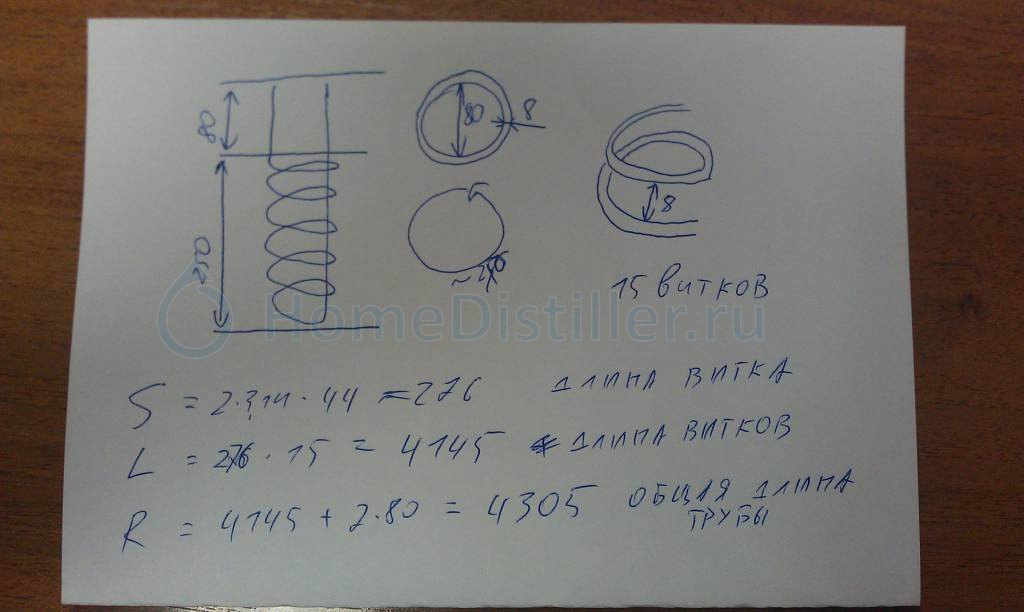 80
80
8
8
250
~276
15 витков
HomeDistiller.ru
S = 2·3,14·44 = 276 длина витка
L = 276·15 = 4145 длина витков
R = 4145 + 2·80 = 4305 общая длина
трубы